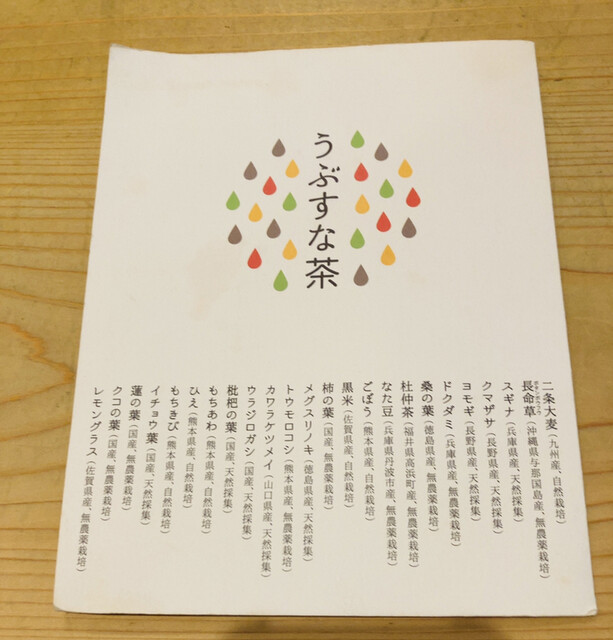 うぶすな茶
二条大麦(九州産、自然栽培)
長命草(沖縄県与那国島産、無農薬栽培)
スギナ(兵庫県産、天然採集)
クマザサ(長野県産、天然採集)
ヨモギ(長野県産、天然採集)
ドクダミ(兵庫県産、無農薬栽培)
桑の葉(徳島県産、無農薬栽培)
杜仲茶(福井県高浜町産、無農薬栽培)
なた豆(兵庫県丹波市産、無農薬栽培)
ごぼう(熊本県産、自然栽培)
黒米(佐賀県産、自然栽培)
柿の葉(国産、無農薬栽培)
メグスリノキ(徳島県産、天然採集)
トウモロコシ(熊本県産、無農薬栽培)
カワラケツメイ(山口県産、天然採集)
ウラジロガシ(国産、天然採集)
枇杷の葉(国産、天然採集)
もちあわ(熊本県産、自然栽培)
ひえ(熊本県産、自然栽培)
もちきび(熊本県産、自然栽培)
イチョウ葉(国産、天然採集)
蓮の葉(国産、無農薬栽培)
クコの葉(国産、無農薬栽培)
レモングラス(佐賀県産、無農薬栽培)